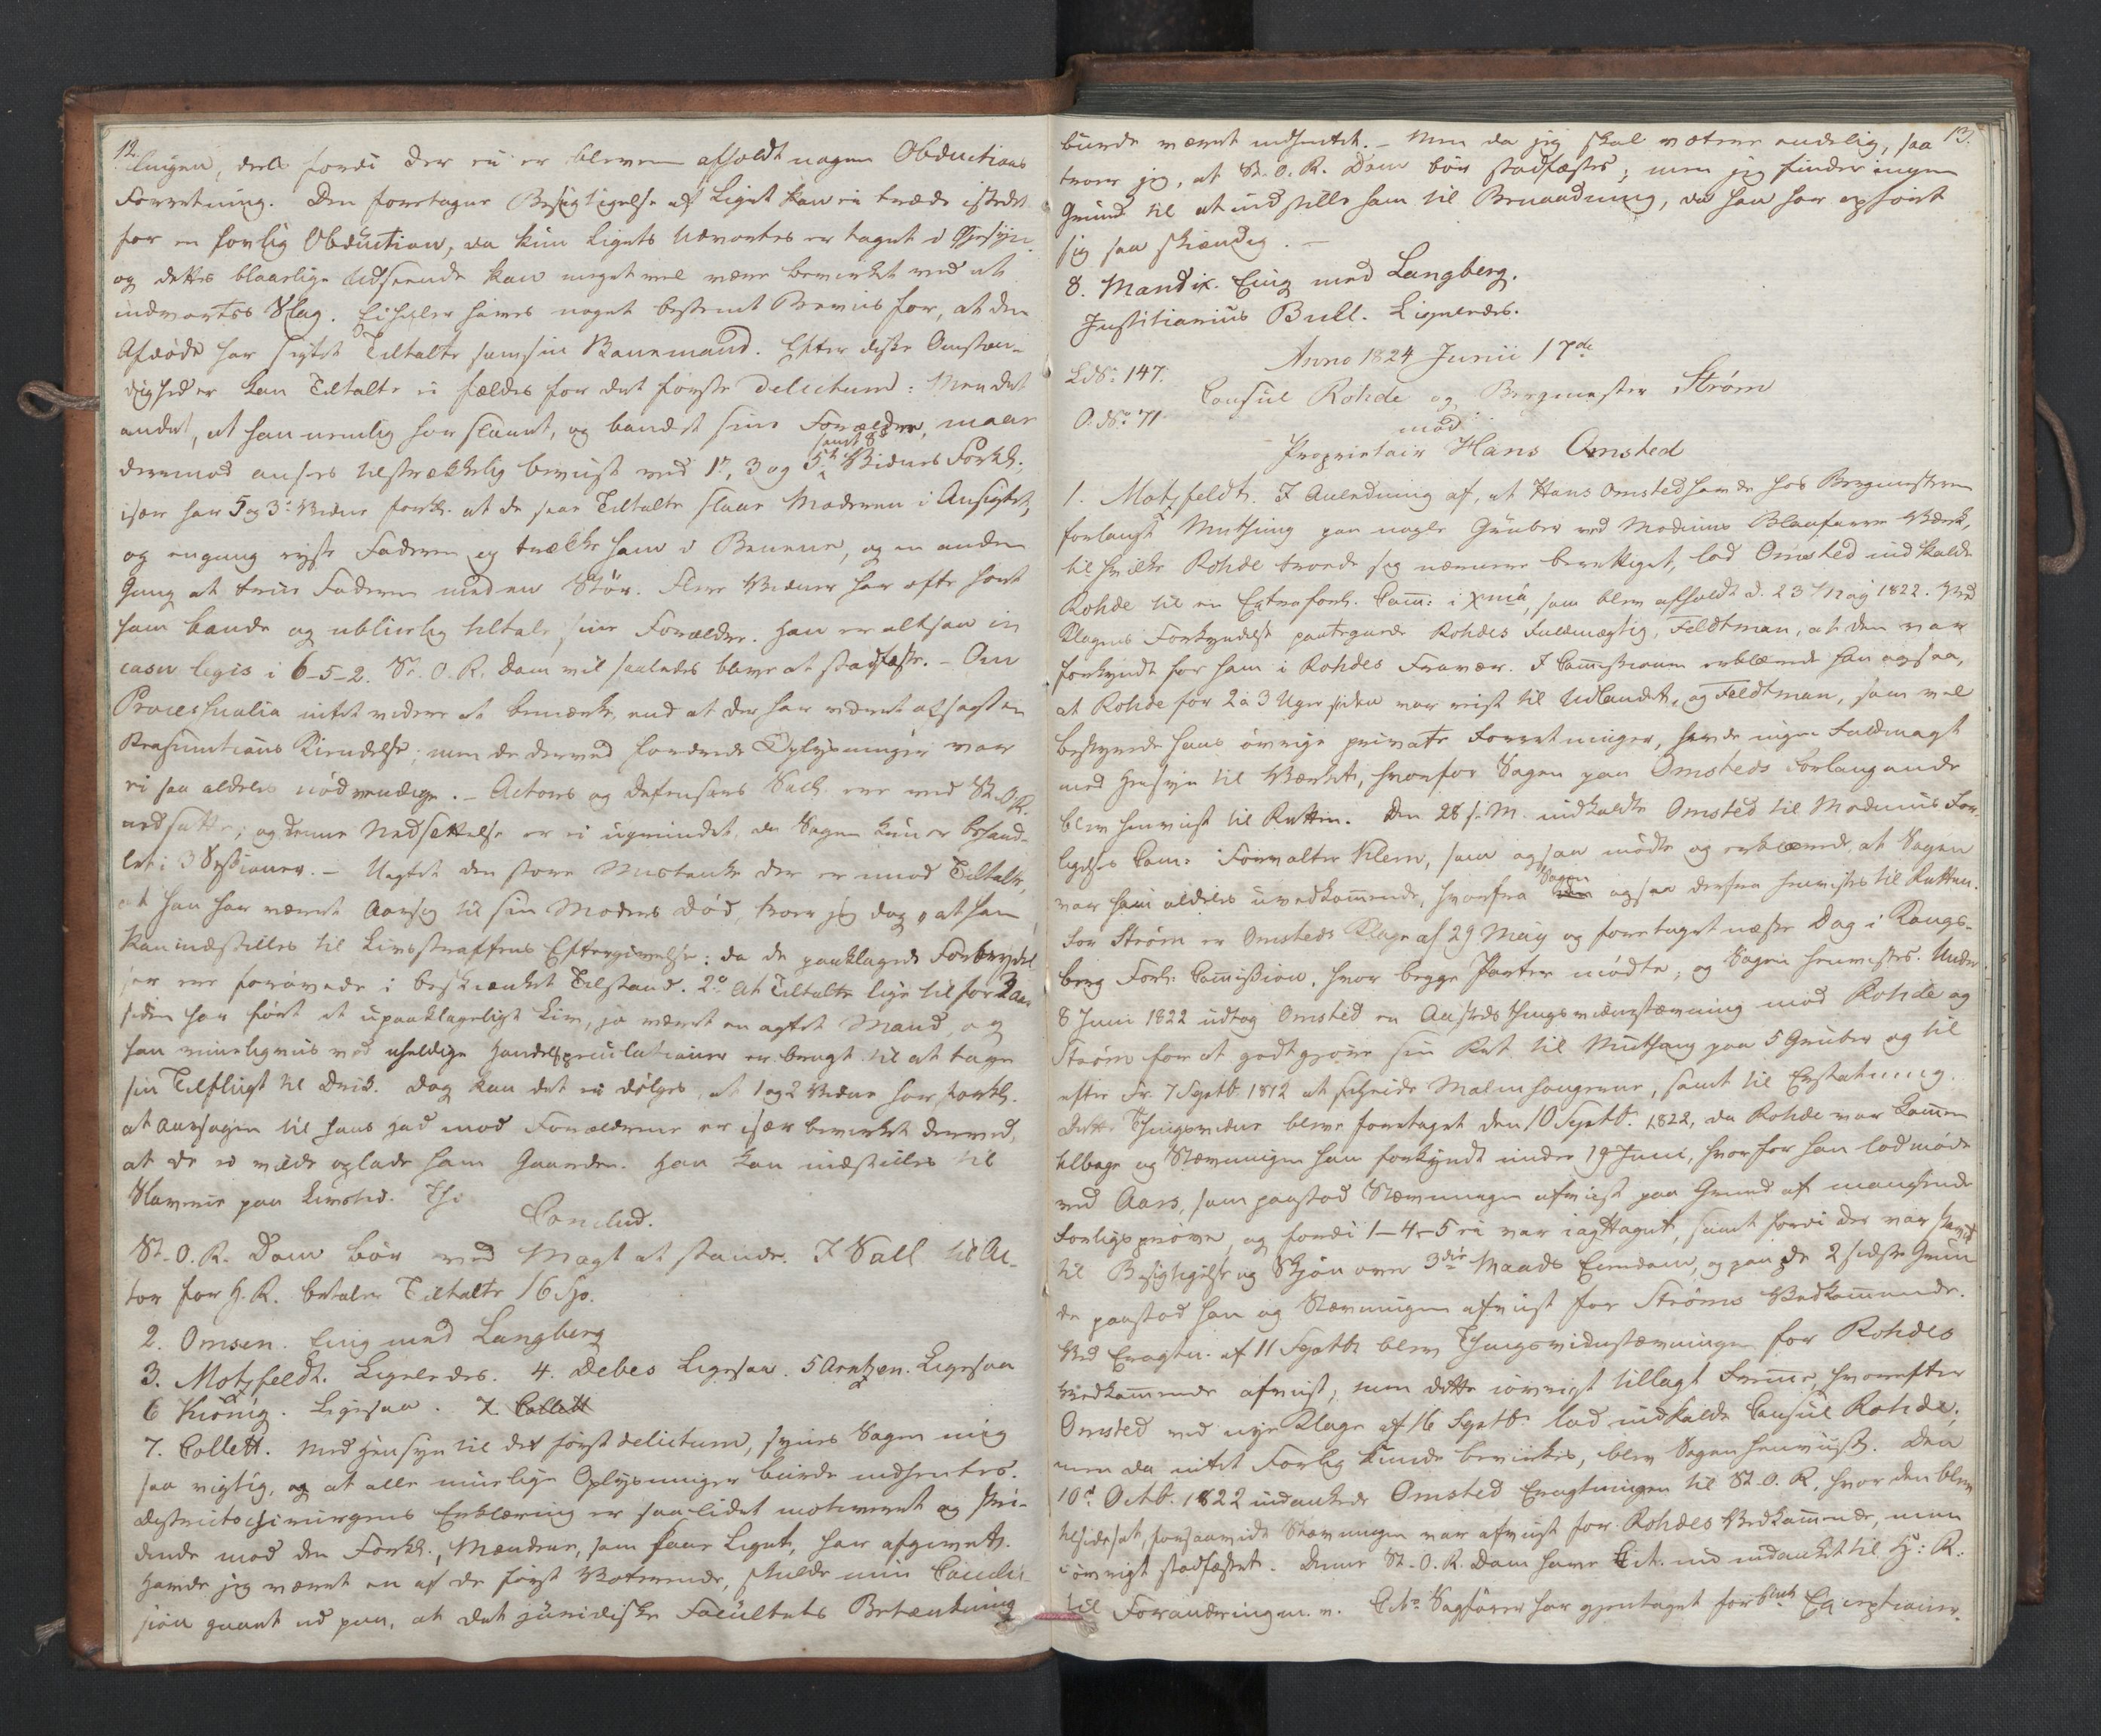 12.
lingen, deels fordi der ei er bleven afholdt nogen Obductions
Forretning. Den foretagne Besigtigelse af Liget kan ei træde istedet
for en lovlig Obduction, da kun Ligets Udvortes er taget i Øjesyn,
og dettes blaaelige Udseende kan meget vel være bevirket ved et
indvortes Slag. Ei heller haves noget bestemt Beviis for, at den
Afdøde har sigtet Tiltalte som sin Banemand. Efter disse Omstæn-
digheder kan Tiltalte ei fældes for det første Delictum: Men det
andet, at han nemlig har slaaet, og bandet sine Forældre, maae
derimod ansees tilstrækkelig beviist ved 1ste, 3 og 5te samt 8de Vidnes Forkl.
især har 5 og 3de Vidne forkl. at de saae Tiltalte slaae Moderen i Ansigtet,
og engang ryste Faderen og trække ham i Benene, og en anden
Gang at true Faderen med en Stör. Flere Vidner har ofte hørt
ham bande og ublueligt tiltale sine Forældre. Han er altsaa in
casu legis i 6-5-2. St. O. R. Dom vil saaledes blive at stadfæste. - Om
Processualia intet videre at bemærke, end at der har været afsagt en
Reasumtions Kiendelse; men de derved fordrede Oplysninger var
ei saa aldeles nødvendige. - Actors og Defensors Sal. ere ved St. O. R.
nedsatte; og denne Nedsættelse er ei ugrundet, da Sagen kun er behand-
let i 3 Sessioner. - Uagtet den store Mistanke der er imod Tiltalte,
at han har været Aarsag til sin Moders Død, troer jeg dog, at han
kan indstilles til Livsstraffens Eftergivelse: da de paaklagede Forbrydel
ser ere forøvede i beskiænket Tilstand. 2o At Tiltalte lige til for 2 Aar
siden har ført et upaaklageligt Liv, ja været en agtet Mand, og
han rimeligviis ved uheldige Handelspeculationer er bragt til at tage
sin Tilflugt til Drik. Dog kan det ei dølges, at 1 og 2 Vidne har forkl.
at Aarsagen til hans Had mod Forældrene er især bevirket derved,
at de ei vilde oplade ham Gaarden. Han kan indstilles til
Slaverie paa Livstid. Thi
Conclud.
St. O. R. Dom bør ved Magt at stande. I Sall til Ac-
tor for H. R. betaler Tiltalte 16 Sp.
2. Omsen. Enig med Langberg
3. Motzfeldt. Ligeledes. 4. Debes Ligesaa. 5 Arntzen. Ligesaa
6 Kiönig. Ligesaa. 7. Collett
7. Collett. Med Hensyn til det først Delictum, synes Sagen mig
saa vigtig, og at alle muelige Oplysninger burde indhentes.
Districtschirurgens Erklæring er saa lidet motiveret og stri-
dende mod den Forkl., Mændene, som saae Liget, har afgivet.
Havde jeg været en af de først Voterende, skulde min Conclu-
sion gaaet ud paa, at det juridiske Facultets Betænkning
13.
burde været indhentet. - Men da jeg skal votere endelig, saa
troer jeg, at St. O. R. Dom bør stadfæstes; men jeg finder ingen
Grund til at indstille ham til Benaadning, da han har opført
sig saa skiændig. -
8. Mandix. Enig med Langberg.
Justitiarius Bull. Ligeledes.
Anno 1824 Junii 17de
L. No. 147.
Consul Rohde og Bergmester Strøm
O. No 71
mod
Proprietair Hans Omsted
1. Motzfeldt. I Anledning af, at Hans Omsted havde hos Bergmesteren
forlangt Muthing paa nogle Gruber ved Modums Blaafarve Værk,
til hvilke Rohde troede sig nærmere berettiget, lod Omsted indkalde
Rohde til en Extraforl. Com: i Xnia, som blev afholdt d. 23 May 1822. Ved
Klagens Forkyndelse paategnede Rohdes Fuldmægtig, Feldtman, at den var
forkyndt for ham i Rohdes Fravær. I Commissionen erklærede han ogsaa,
at Rohde for 2 a 3 Uger siden var reist til Udlandet, og Feldtman, som vel
bestyrede hans øvrige private Forretninger, havde ingen Fuldmagt
med Hensyn til Værket, hvorfor Sagen paa Omsteds Forlangende
blev henviist til Retten. Den 28 s. M. indkaldte Omsted til Modums For-
ligelses Com: Forvalter Klem, som ogsaa mødte og erklærede, at Sagen
var ham aldeles uvedkommende, hvorfra Sagen ogsaa derfra henvistes til Retten.
For Strøm er Omsteds Klage af 29 May og foretaget næste Dag i Kongs-
berg Forl: Commission, hvor begge Parter mødte, og Sagen henvistes. Under
8 Juni 1822 udtog Omsted en Aasteds Thingsvidnestævning mod Rohde og
Strøm for at godtgjøre sin Ret til Muthing paa 5 Gruber og til
efter Fr. 7 Septb. 1812 at scheide Malmhougerne, samt til Erstatning.
Dette Thingsvidne blev foretaget den 10 Septb. 1822, da Rohde var kommen
tilbage og Stævningen ham forkyndt under 19 Juni, hvorfor han lod møde
ved Aars, som paastod Stævningen afviist paa Grund af manglende
Forligsprøve, og fordi 1-4-5 ei var iagttaget, samt fordi der var stævnt
til Besigtigelse og Skjøn over 3die Mands Eiendom, og paa de 2 sidste Grun
de paastod han og Stævningen afviist for Strøms Vedkommende.
Ved Eragtn. af 11 Septb. blev Thingsvidnestævningen for Rohdes
Vedkommende afviist; men dette iøvrigt tillagt Fremme, hvorefter
Omsted ved nye Klage af 16 Septb. lod indkalde Consul Rohde;
men da intet Forlig kunde bevirkes, blev Sagen henviist. Den
10d Octb. 1822 indankede Omsted Eragtningen til St. O. R., hvor den blev
tilsidesat, forsaavidt Stævningen var afviist for Rohdes Vedkommende, men
iøvrigt stadfæstet. Denne St. O. R. Dom have Cit. nu indanket til H: R:
til Forandring m. v. Citr. Sagfører har gjentaget forbenh Exceptioner.